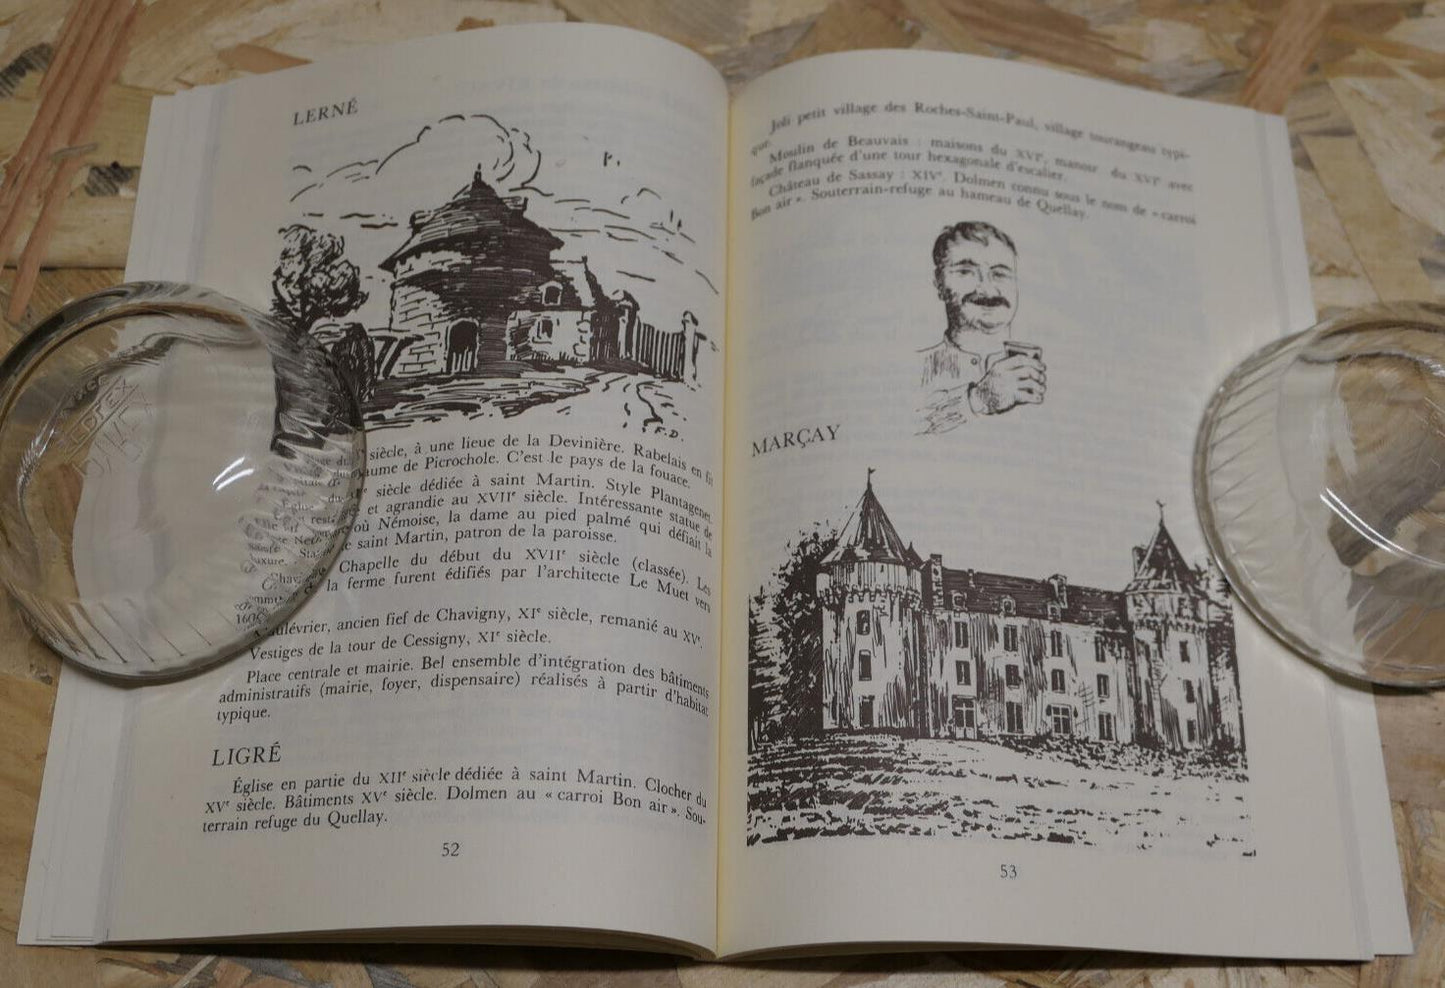 LERNÉ
F.D.
siècle, à une lieue de la Devinière. Rabelais en fit
aume de Picrochole. C'est le pays de la fouace.
siècle dédiée à saint Martin. Style Plantagenet
et agrandie au XVIIᵉ siècle. Intéressante statue de
où Némoise, la dame au pied palmé qui défiait la
saint Martin, patron de la paroisse.
Chapelle du début du XVIIᵉ siècle (classée). Les
la ferme furent édifiés par l'architecte Le Muet vers
ulévrier, ancien fief de Chavigny, XIᵉ siècle, remanié au XVᵉ.
Vestiges de la tour de Cessigny, XIᵉ siècle.
Place centrale et mairie. Bel ensemble d'intégration des bâtiments
administratifs (mairie, foyer, dispensaire) réalisés à partir d'habitat
typique.
LIGRÉ
Église en partie du XIIᵉ siècle dédiée à saint Martin. Clocher du
XVᵉ siècle. Bâtiments XVᵉ siècle. Dolmen au « carroi Bon air ». Sou-
terrain refuge du Quellay.
52
Joli petit village des Roches-Saint-Paul, village tourangeau typi-
que.
Moulin de Beauvais : maisons du XVIᵉ, manoir du XVIᵉ avec
façade flanquée d'une tour hexagonale d'escalier.
Château de Sassay : XIVᵉ. Dolmen connu sous le nom de « carroi
Bon air ». Souterrain-refuge au hameau de Quellay.
MARÇAY
53